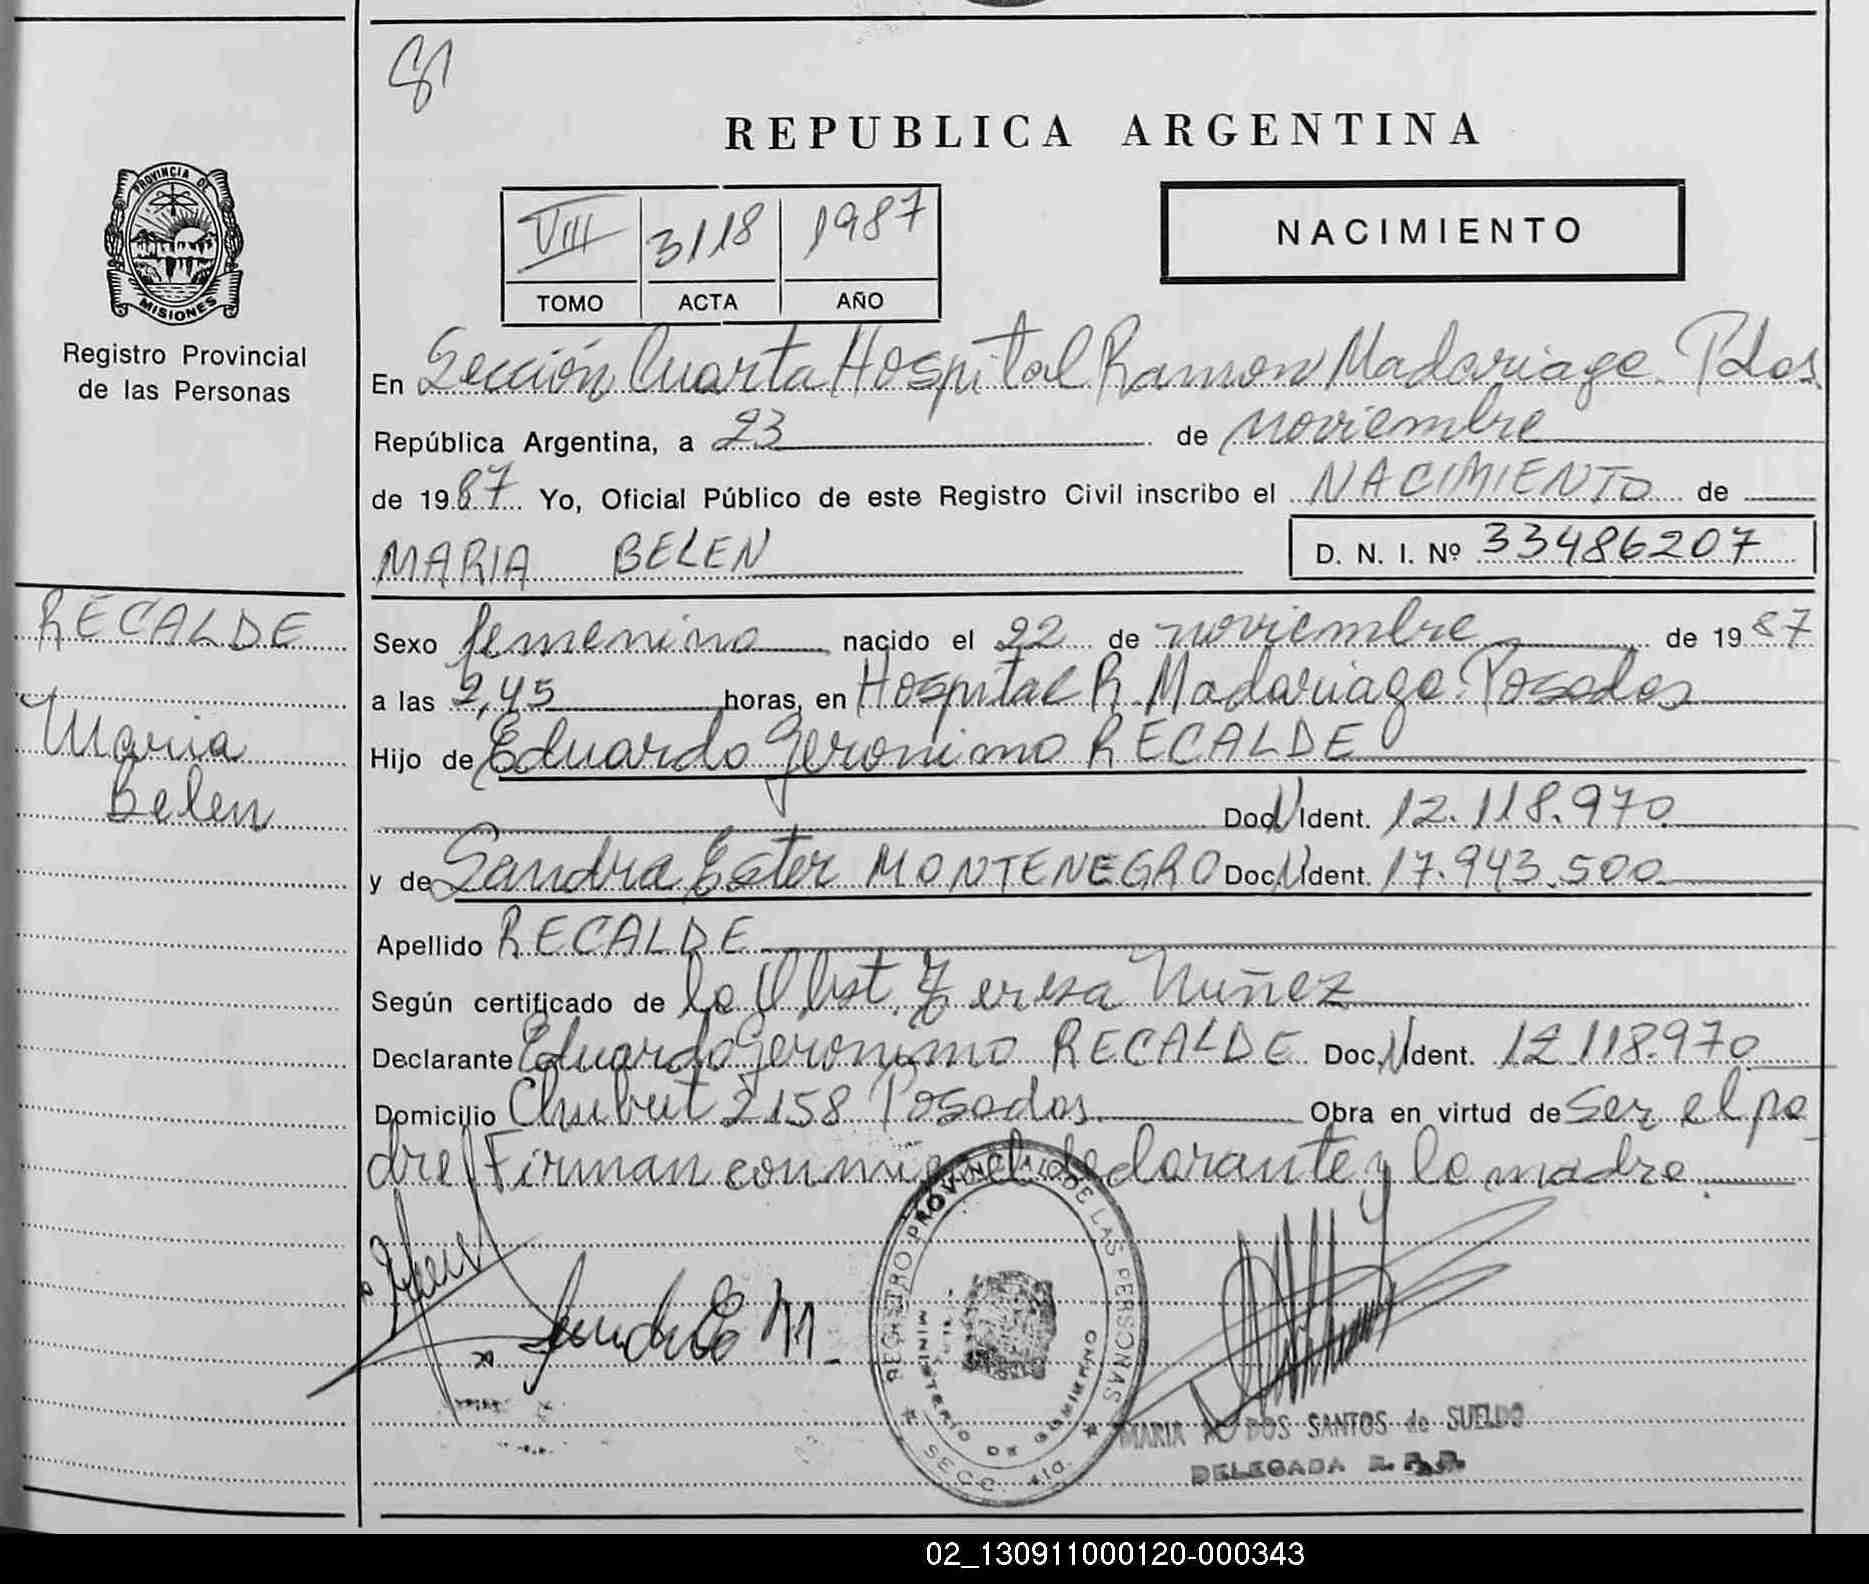 81
REPUBLICA ARGENTINA
PROVINCIA DE
MISIONES
Registro Provincial
de las Personas
VIII 3118 1987
TOMO ACTA AÑO
NACIMIENTO
En Sección Cuarta Hospital Ramon Madariaga. Pdas.
República Argentina, a 23 de noviembre
de 1987 Yo, Oficial Público de este Registro Civil inscribo el NACIMIENTO de
MARIA BELEN
D. N. I. Nº 33486207
RECALDE
Maria
Belen
Sexo femenino nacido el 22 de noviembre de 1987
a las 2,45 horas, en Hospital R. Madariaga. Posadas
Hijo de Eduardo Geronimo RECALDE
Doc. Ident. 12.118.970
y de Sandra Ester MONTENEGRO Doc. Ident. 17.943.500
Apellido RECALDE
Según certificado de la Obst. Teresa Nuñez
Declarante Eduardo Geronimo RECALDE Doc. Ident. 12.118.970
Domicilio Chubut 2158 Posadas. Obra en virtud de ser el pa
dre. Firman conmigo el declarante y la madre.
Sandra E M.
REGISTRO PROVINCIAL DE LAS PERSONAS
MINISTERIO DE GOBIERNO
SECC. 4ta.
MARIA DOS SANTOS de SUELDO
DELEGADA
02_130911000120-000343